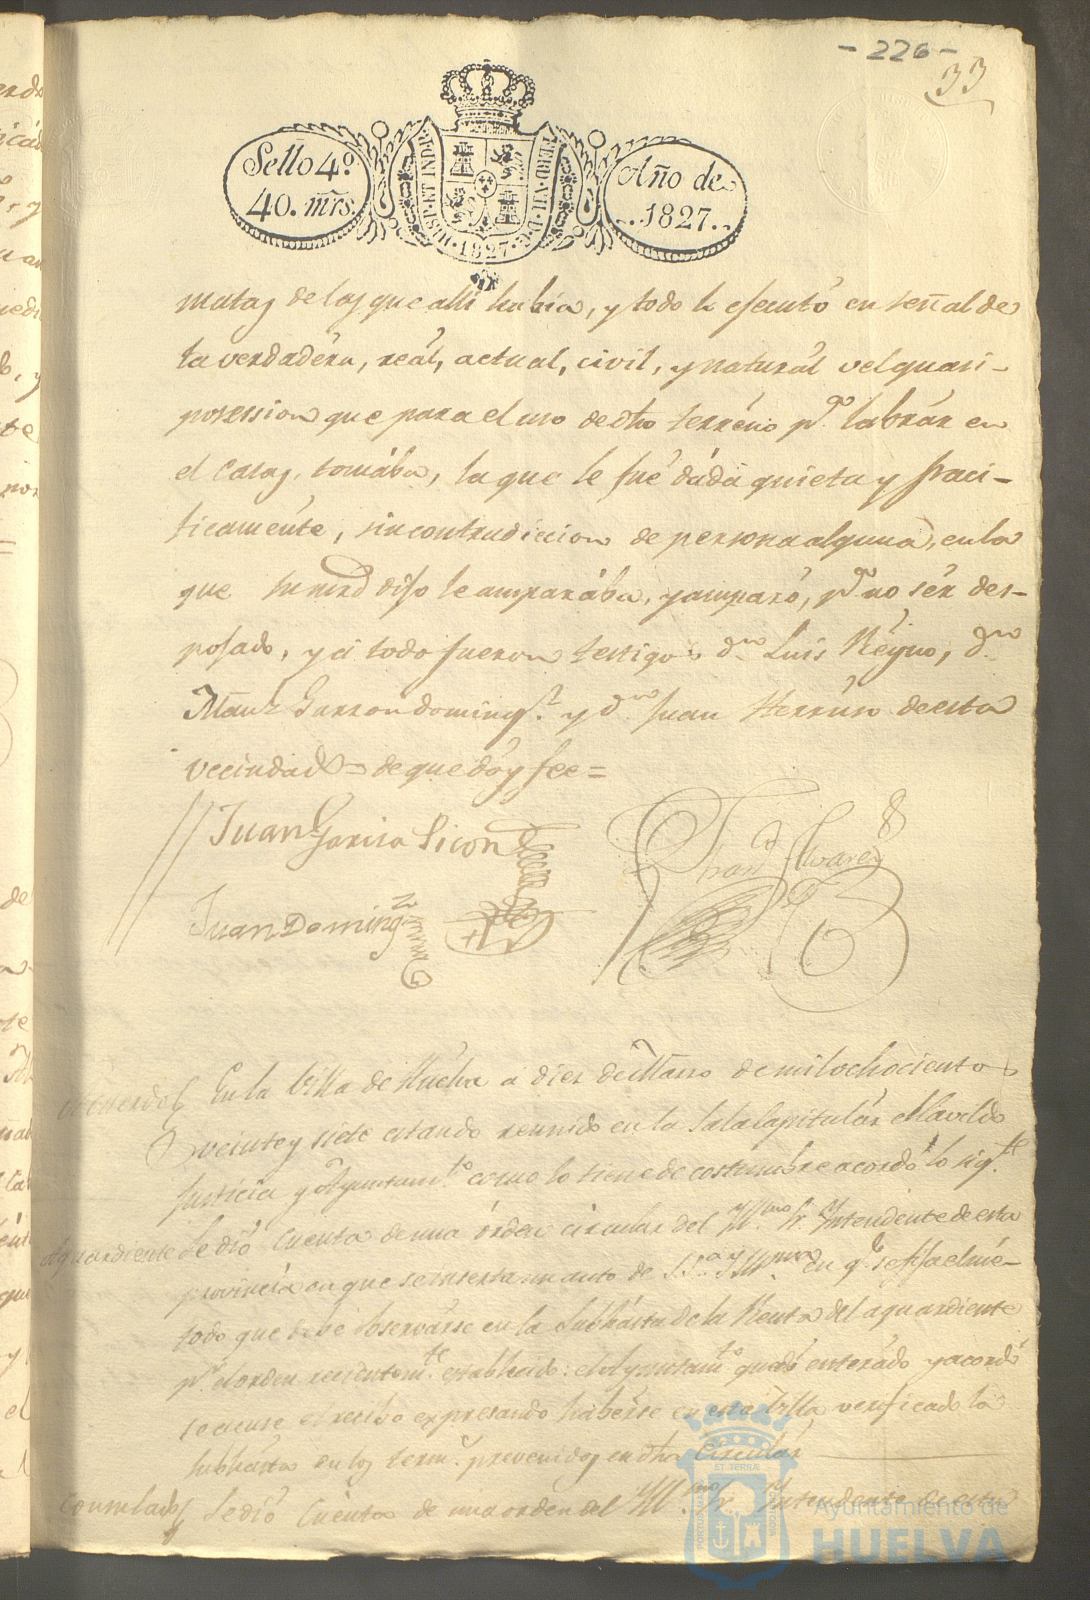 - 226 -
33
Sello 4º.
40. mrs.
HISP. ET IND. R.
FERD. VII. D. G.
1827
Año de
1827.
matas de las que alli habia, y todo lo ejecutó en señal de
la verdadéra, reál, actual, civil, y naturál vel quasi
posession que para el uso de dho terréno pª. labrár en
el casas, tomába, la que le fué dáda quieta y paci-
ficaménte, sin contradiccion de persona alguna, en la
que su mrd dijo le amparába, y amparó, pª. no sér des-
pojado, y á todo fueron testigos dn Luis Réyno, dn
Manl. Garzon domingz. y dn Juan Herrún de esta
vecindad = de que dóy fee =
Juan Garcia Picon
Franco. Alvarez
Juan Domingz
Acuerdo
En la Villa de Huelva á diez de Marzo de mil ochocientos
veinte y siete estando reunido en la Sala Capitulár el Cavildo
Justicia y Ayuntamto. como lo tiene de costumbre acordó lo sigte.
Aguardiente
Se dió Cuenta de una órden circular del Yllmo. Sr. Yntendente de esta
provincia en que se inserta un auto de S.Sa. Yllma. en qe. se fija el mé-
todo que debe observárse en la Subhásta de la Renta del aguardiente
pr. el orden recientemte. establecido: el Ayuntamto. quedó enterádo y acordó
se acuse el recibo expresando habérse en esta Villa verificado la
subhásta en los termos. prevenidos en dha Circulár
Consulados
Se dió Cuenta de una orden del Yllmo. Sr. Yntendente de esta
PORTUS MARIS
ET TERRÆ
CUSTODIA
Ayuntamiento de
HUELVA